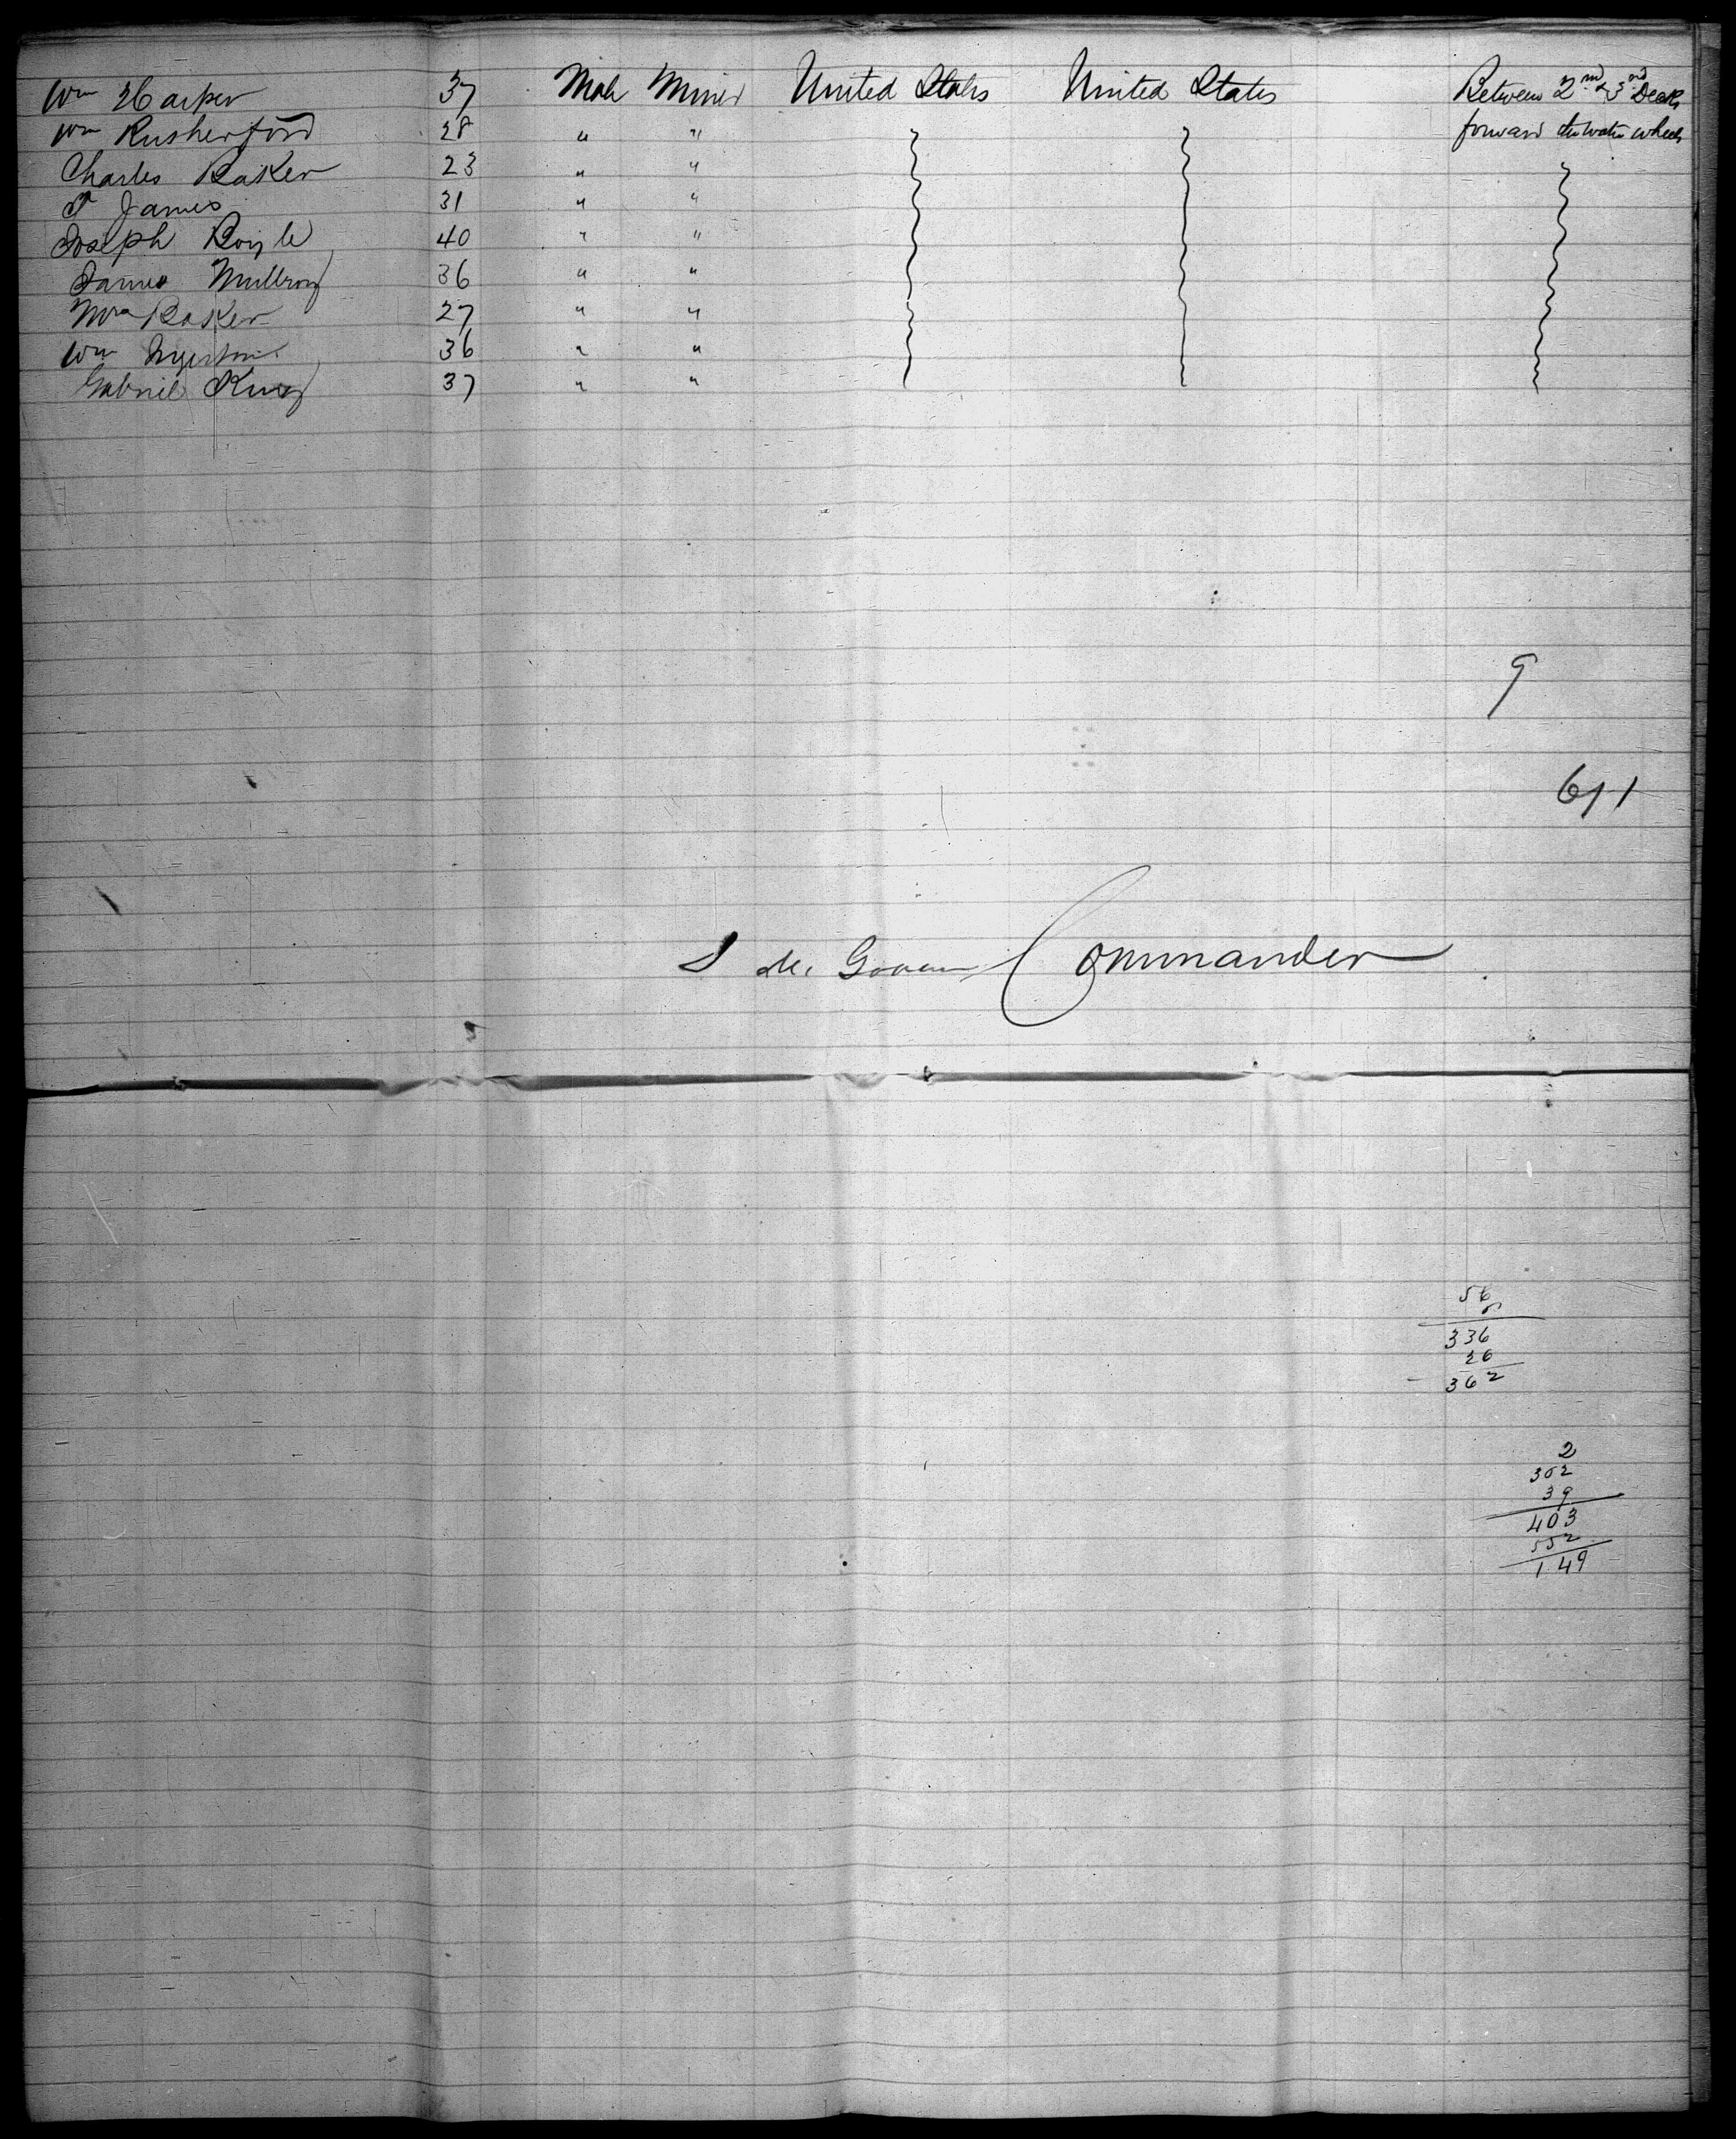 Wm Harper 37 Male Miner United States United States Between 2nd & 3rd Decks
Wm Rusherford 28 " " forward the water wheels
Charles Baker 23 " "
T James 31 " "
Joseph Boyle 40 " "
James 36 " "
Wm Baker 27 " "
Wm 36 " "
Gabriel King 37 " "
9
611
Commander
56
6
336
26
362
2
362
39
403
552
149